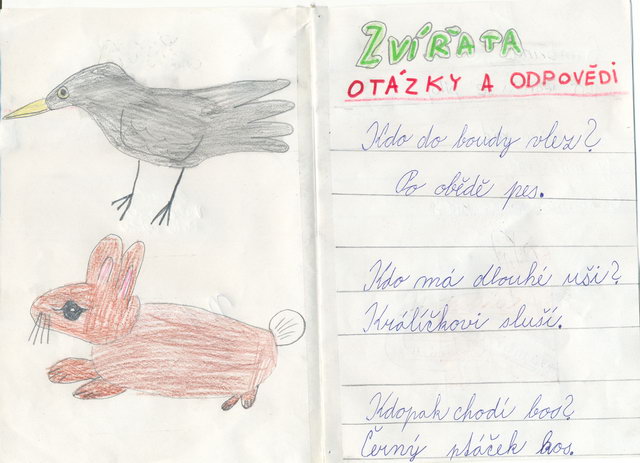 ZVÍŘATA
OTÁZKY A ODPOVĚDI
Kdo do boudy vlez?
Po obědě pes.
Kdo má dlouhé uši?
Králíčkovi sluší.
Kdopak chodí bos?
Černý ptáček kos.